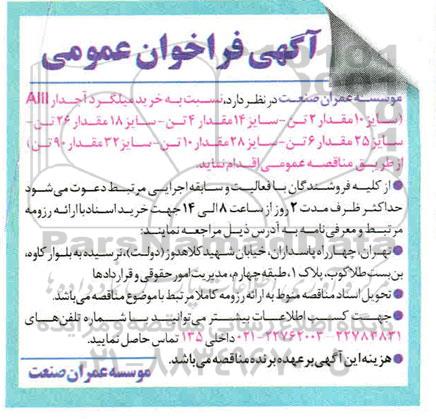 آگهی فراخوان عمومی
موسسه عمران صنعت در نظر دارد، نسبت به خرید میلگرد آجدار AIII
(سایز ۱۰ مقدار ۲ تن - سایز ۱۴ مقدار ۴ تن - سایز ۱۸ مقدار ۲۶ تن -
سایز ۲۵ مقدار ۶ تن - سایز ۲۸ مقدار ۱۰ تن - سایز ۳۲ مقدار ۹۰ تن)
از طریق مناقصه عمومی اقدام نماید.
● از کلیه فروشندگان با فعالیت و سابقه اجرایی مرتبط دعوت می شود
حداکثر ظرف مدت ۲ روز از ساعت ۸ الی ۱۴ جهت خرید اسناد با ارائه رزومه
مرتبط و معرفی نامه به آدرس ذیل مراجعه نمایند:
● تهران، چهارراه پاسداران، خیابان شهید کلاهدوز (دولت)، نرسیده به بلوار کاوه،
بن بست طلاکوب، پلاک ۱، طبقه چهارم، مدیریت امور حقوقی و قراردادها
● تحویل اسناد مناقصه منوط به ارائه رزومه کاملا مرتبط با موضوع مناقصه می باشد.
● جهت کسب اطلاعات بیشتر می توانید با شماره تلفن های
۲۲۷۸۳۸۳۱ - ۲۲۷۶۲۰۰۳-۰۲۱ داخلی ۱۳۵ تماس حاصل نمایید.
● هزینه این آگهی بر عهده برنده مناقصه می باشد.
موسسه عمران صنعت
ParsNamadData
پایگاه اطلاع رسانی مناقصه و مزایده